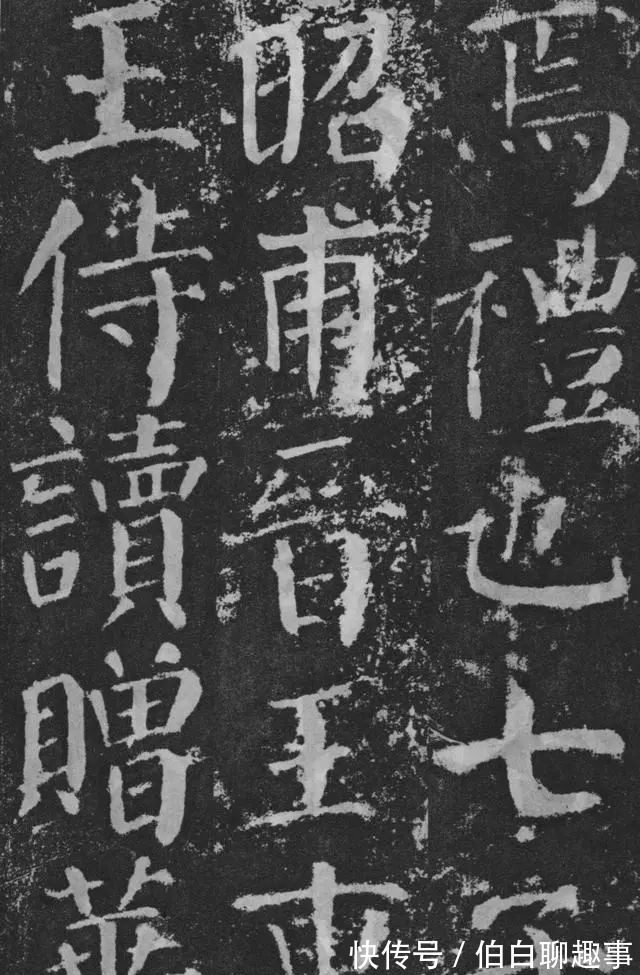 焉禮也七子
昭甫晉王曹
王侍讀贈華
快传号 / 伯白聊趣事